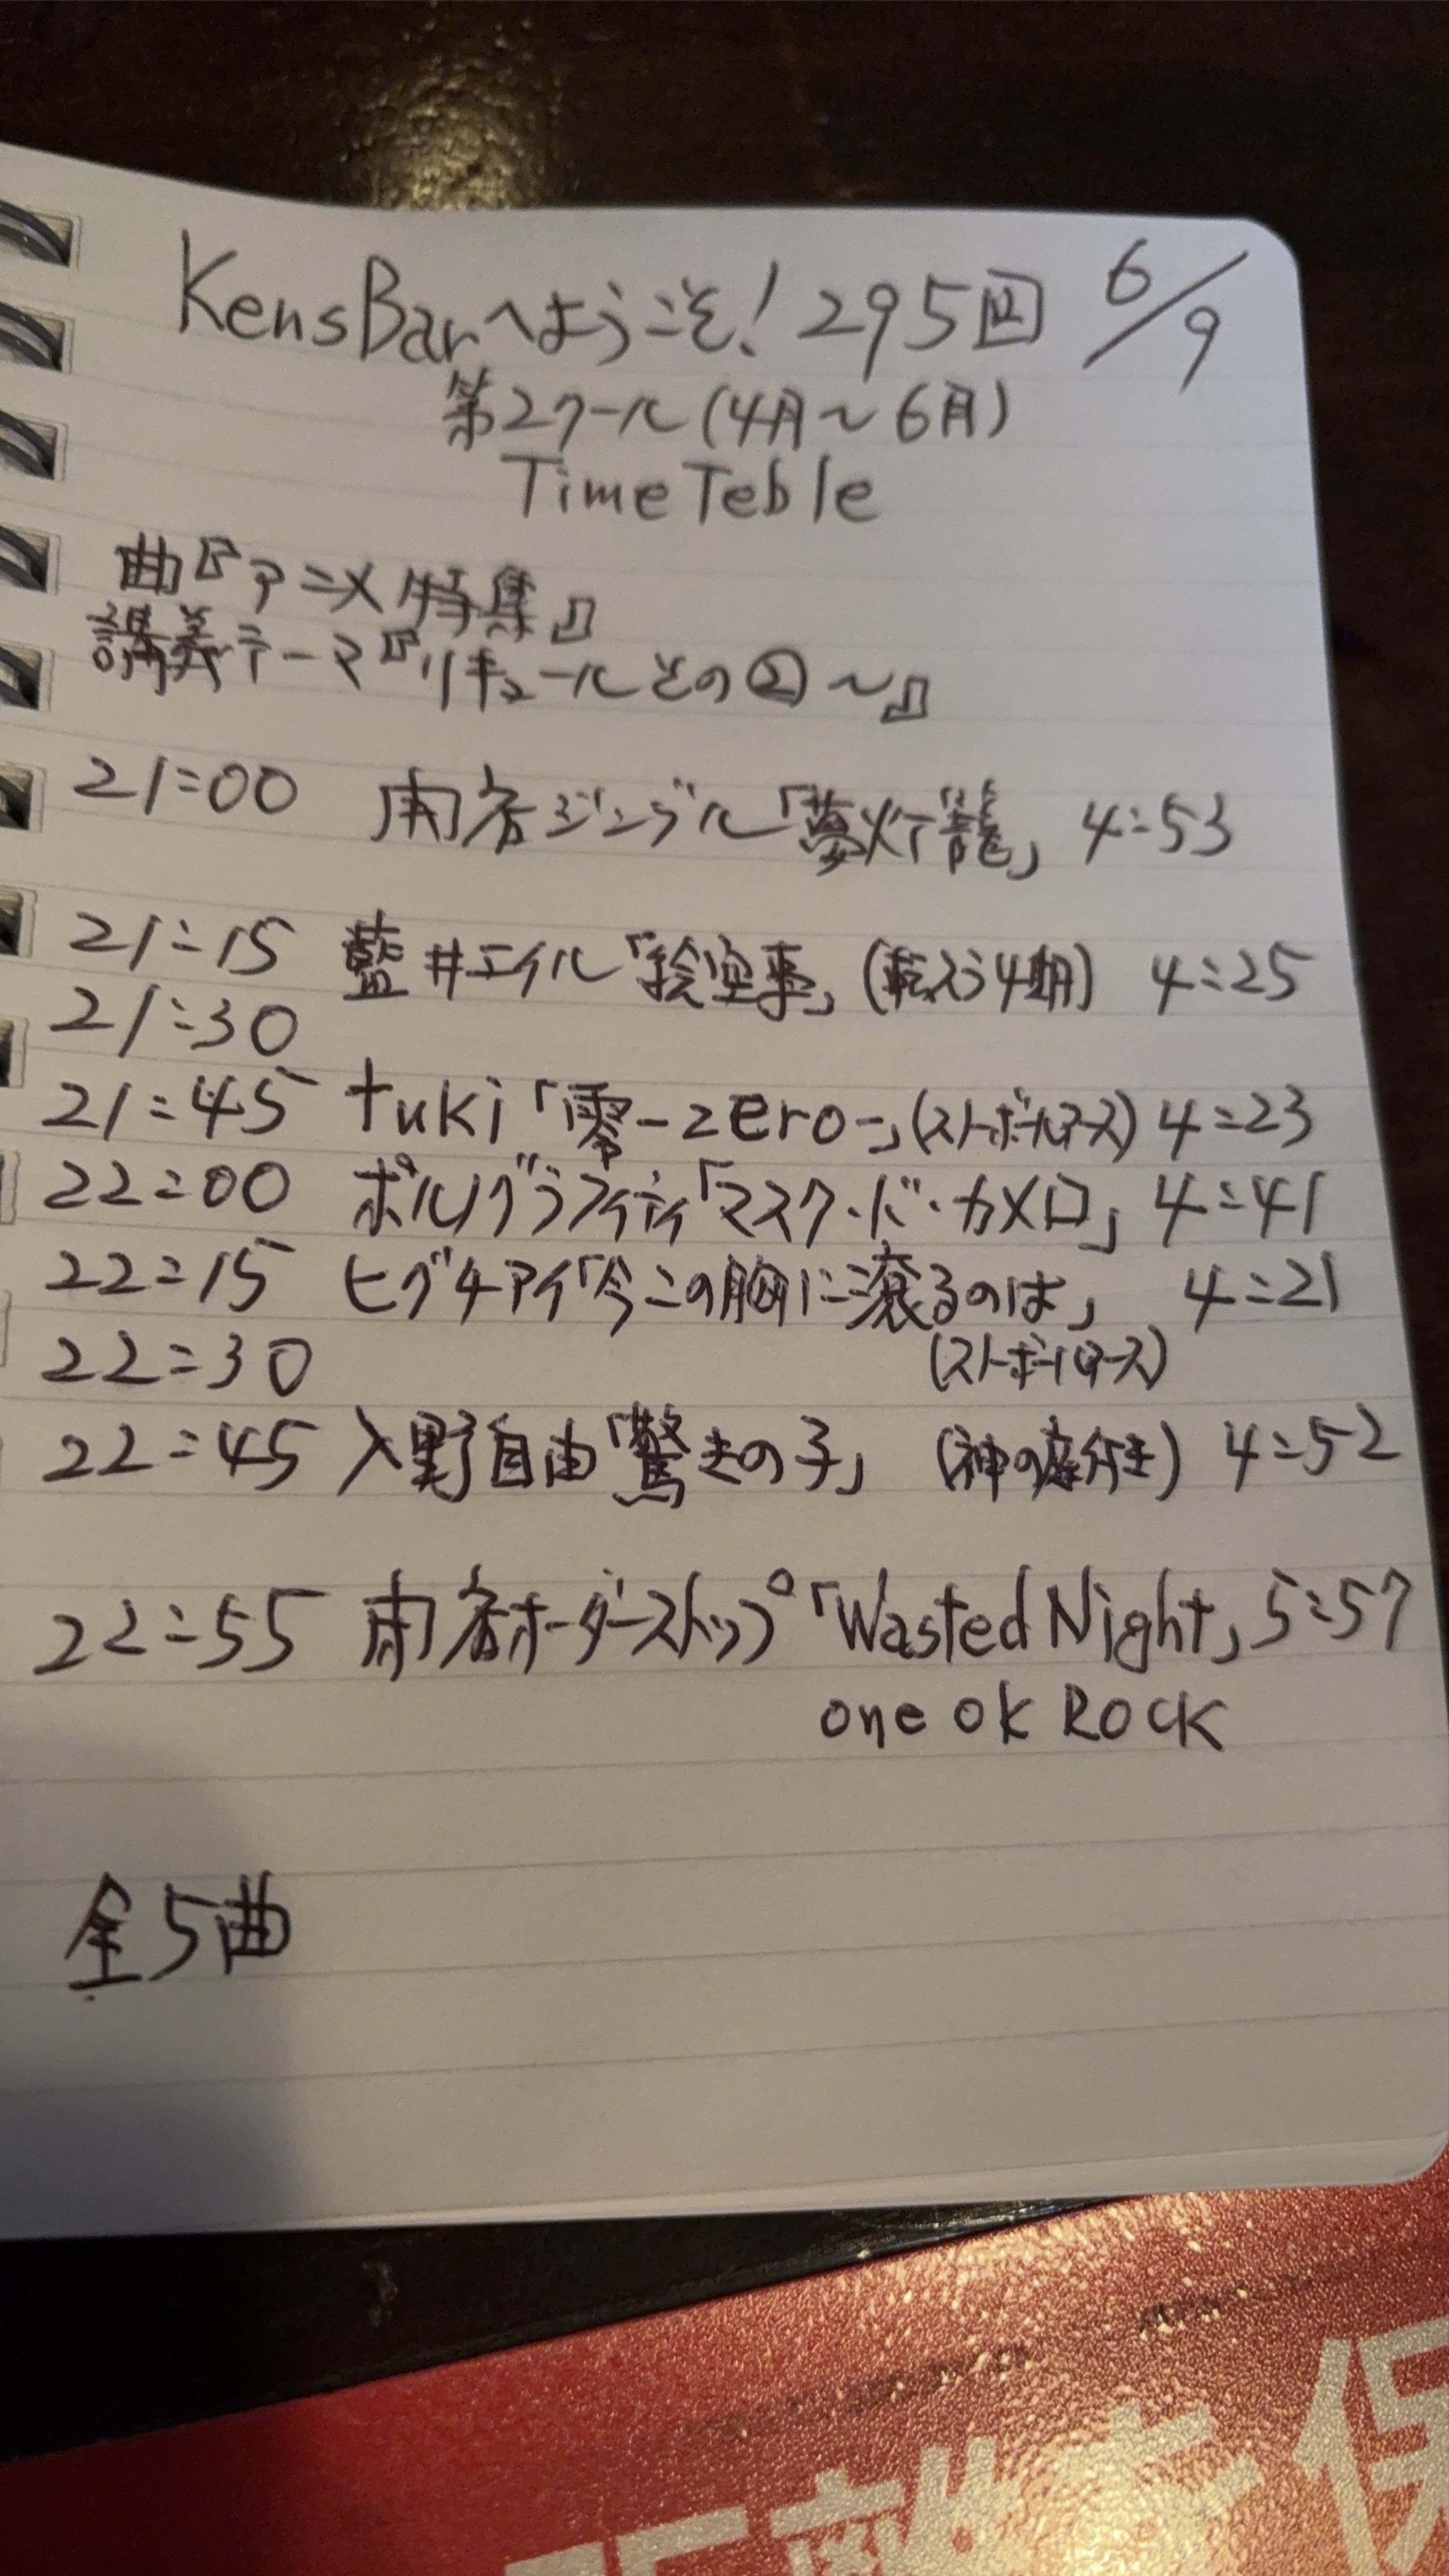 KensBarへようこそ!295回 6/9
第2クール(4月〜6月)
TimeTeble
曲『アニメ特集』
講義テーマ『リキュールその②〜』
21:00 開店ジングル「夢灯籠」 4:53
21:15 藍井エイル「絵空事」(転スラ4期) 4:25
21:30
21:45 tuki「零-zero-」(ストボールアース) 4:23
22:00 ポルノグラフィティ「マスク・ド・カメロ」 4:41
22:15 ヒグチアイ「今この胸に滾るのは」 4:21
(ストボールアース)
22:30
22:45 入野自由「驚きの子」 (神の庭付き) 4:52
22:55 オーダーストップ「Wasted Night」5:57
one ok ROCK
全5曲
保